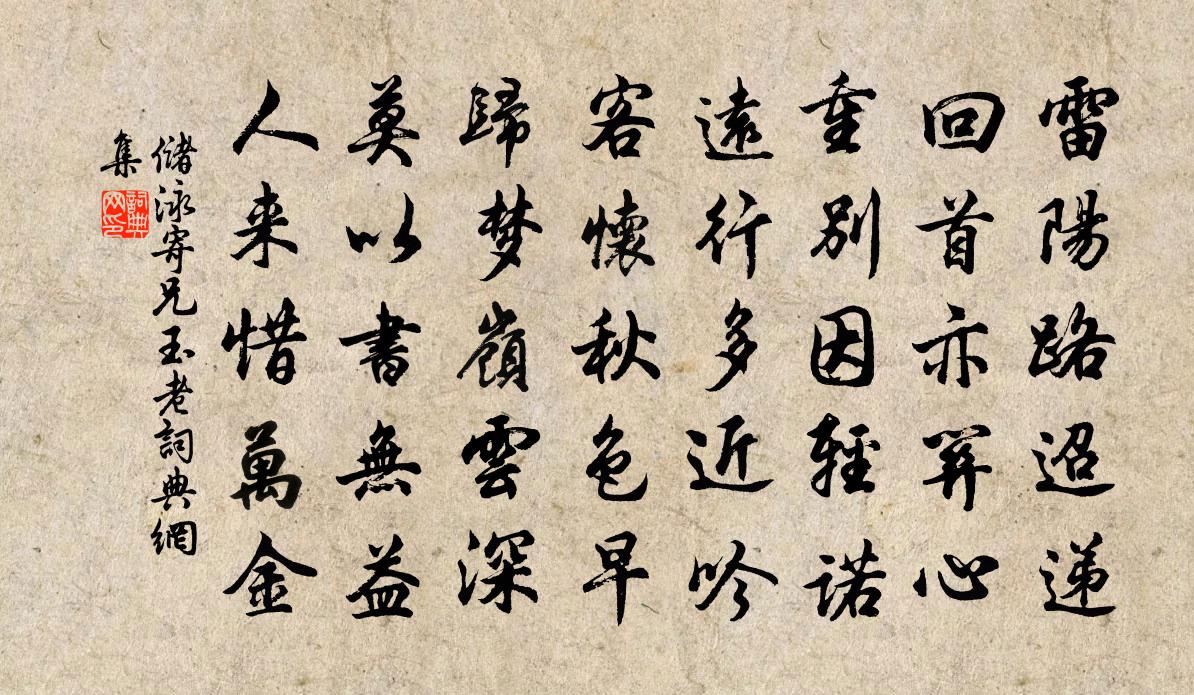 雷陽路迢递
回首亦關心
重別因輕諾
遠行多近吟
客懷秋色早
歸梦嶺雲深
莫以書無益
人来惜萬金
儲泳寄兄玉老詞典網
集
詞典
网印